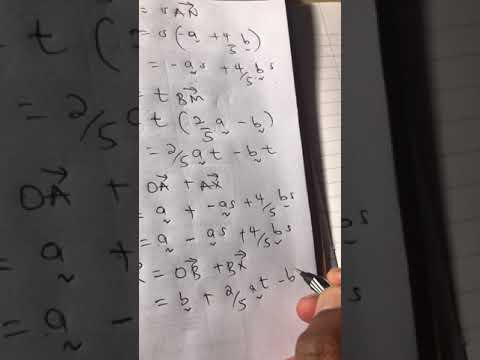 = s AN
= s (-a + 4/5 b)
= -as + 4/5 bs
= t BM
t ( 2/5 a - b )
= 2/5 at - bt
OA + AX
= a + -as + 4/5 bs
= a - as + 4/5 bs
= OB + BX
= b + 2/5 at - b